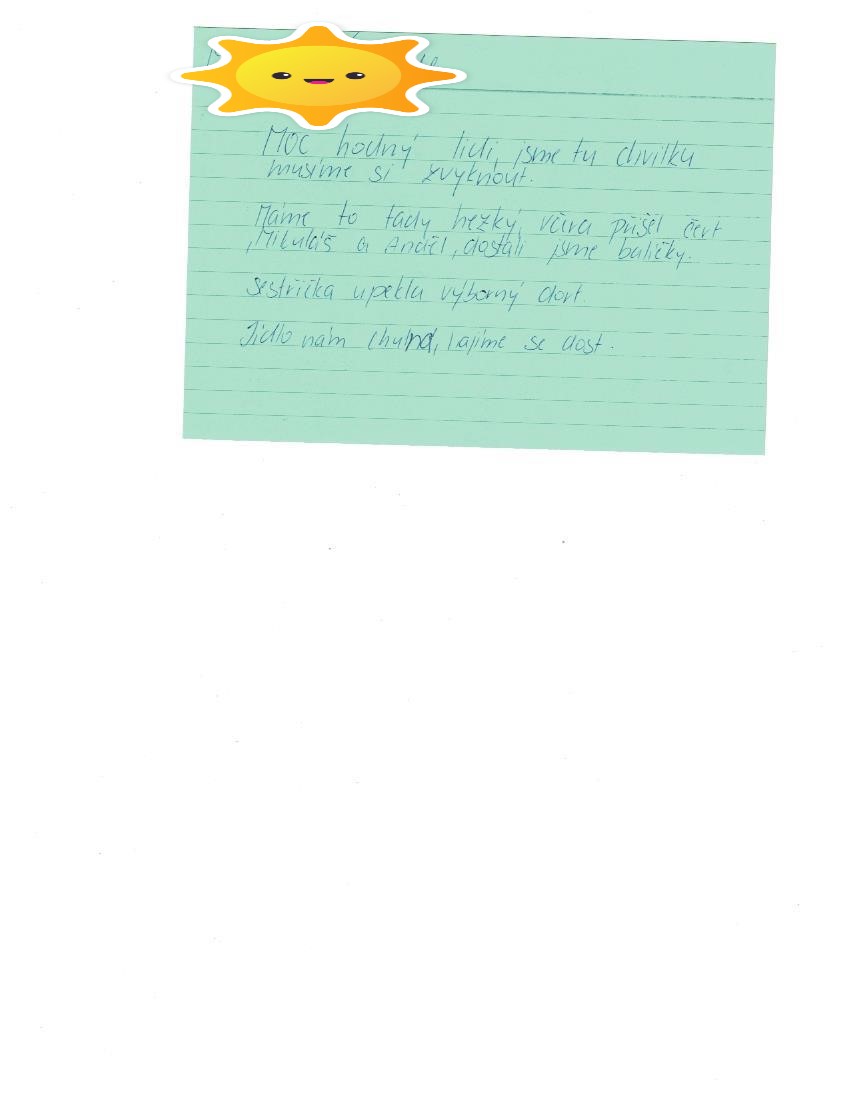 Moc hodný lidi, jsme tu chvilku
musíme si zvyknout.
Máme to tady hezký, včera přišel čert
,Mikuláš a Anděl, dostali jsme balíčky.
Sestřička upekla výborný dort.
Jídlo nám chutná, se dost.